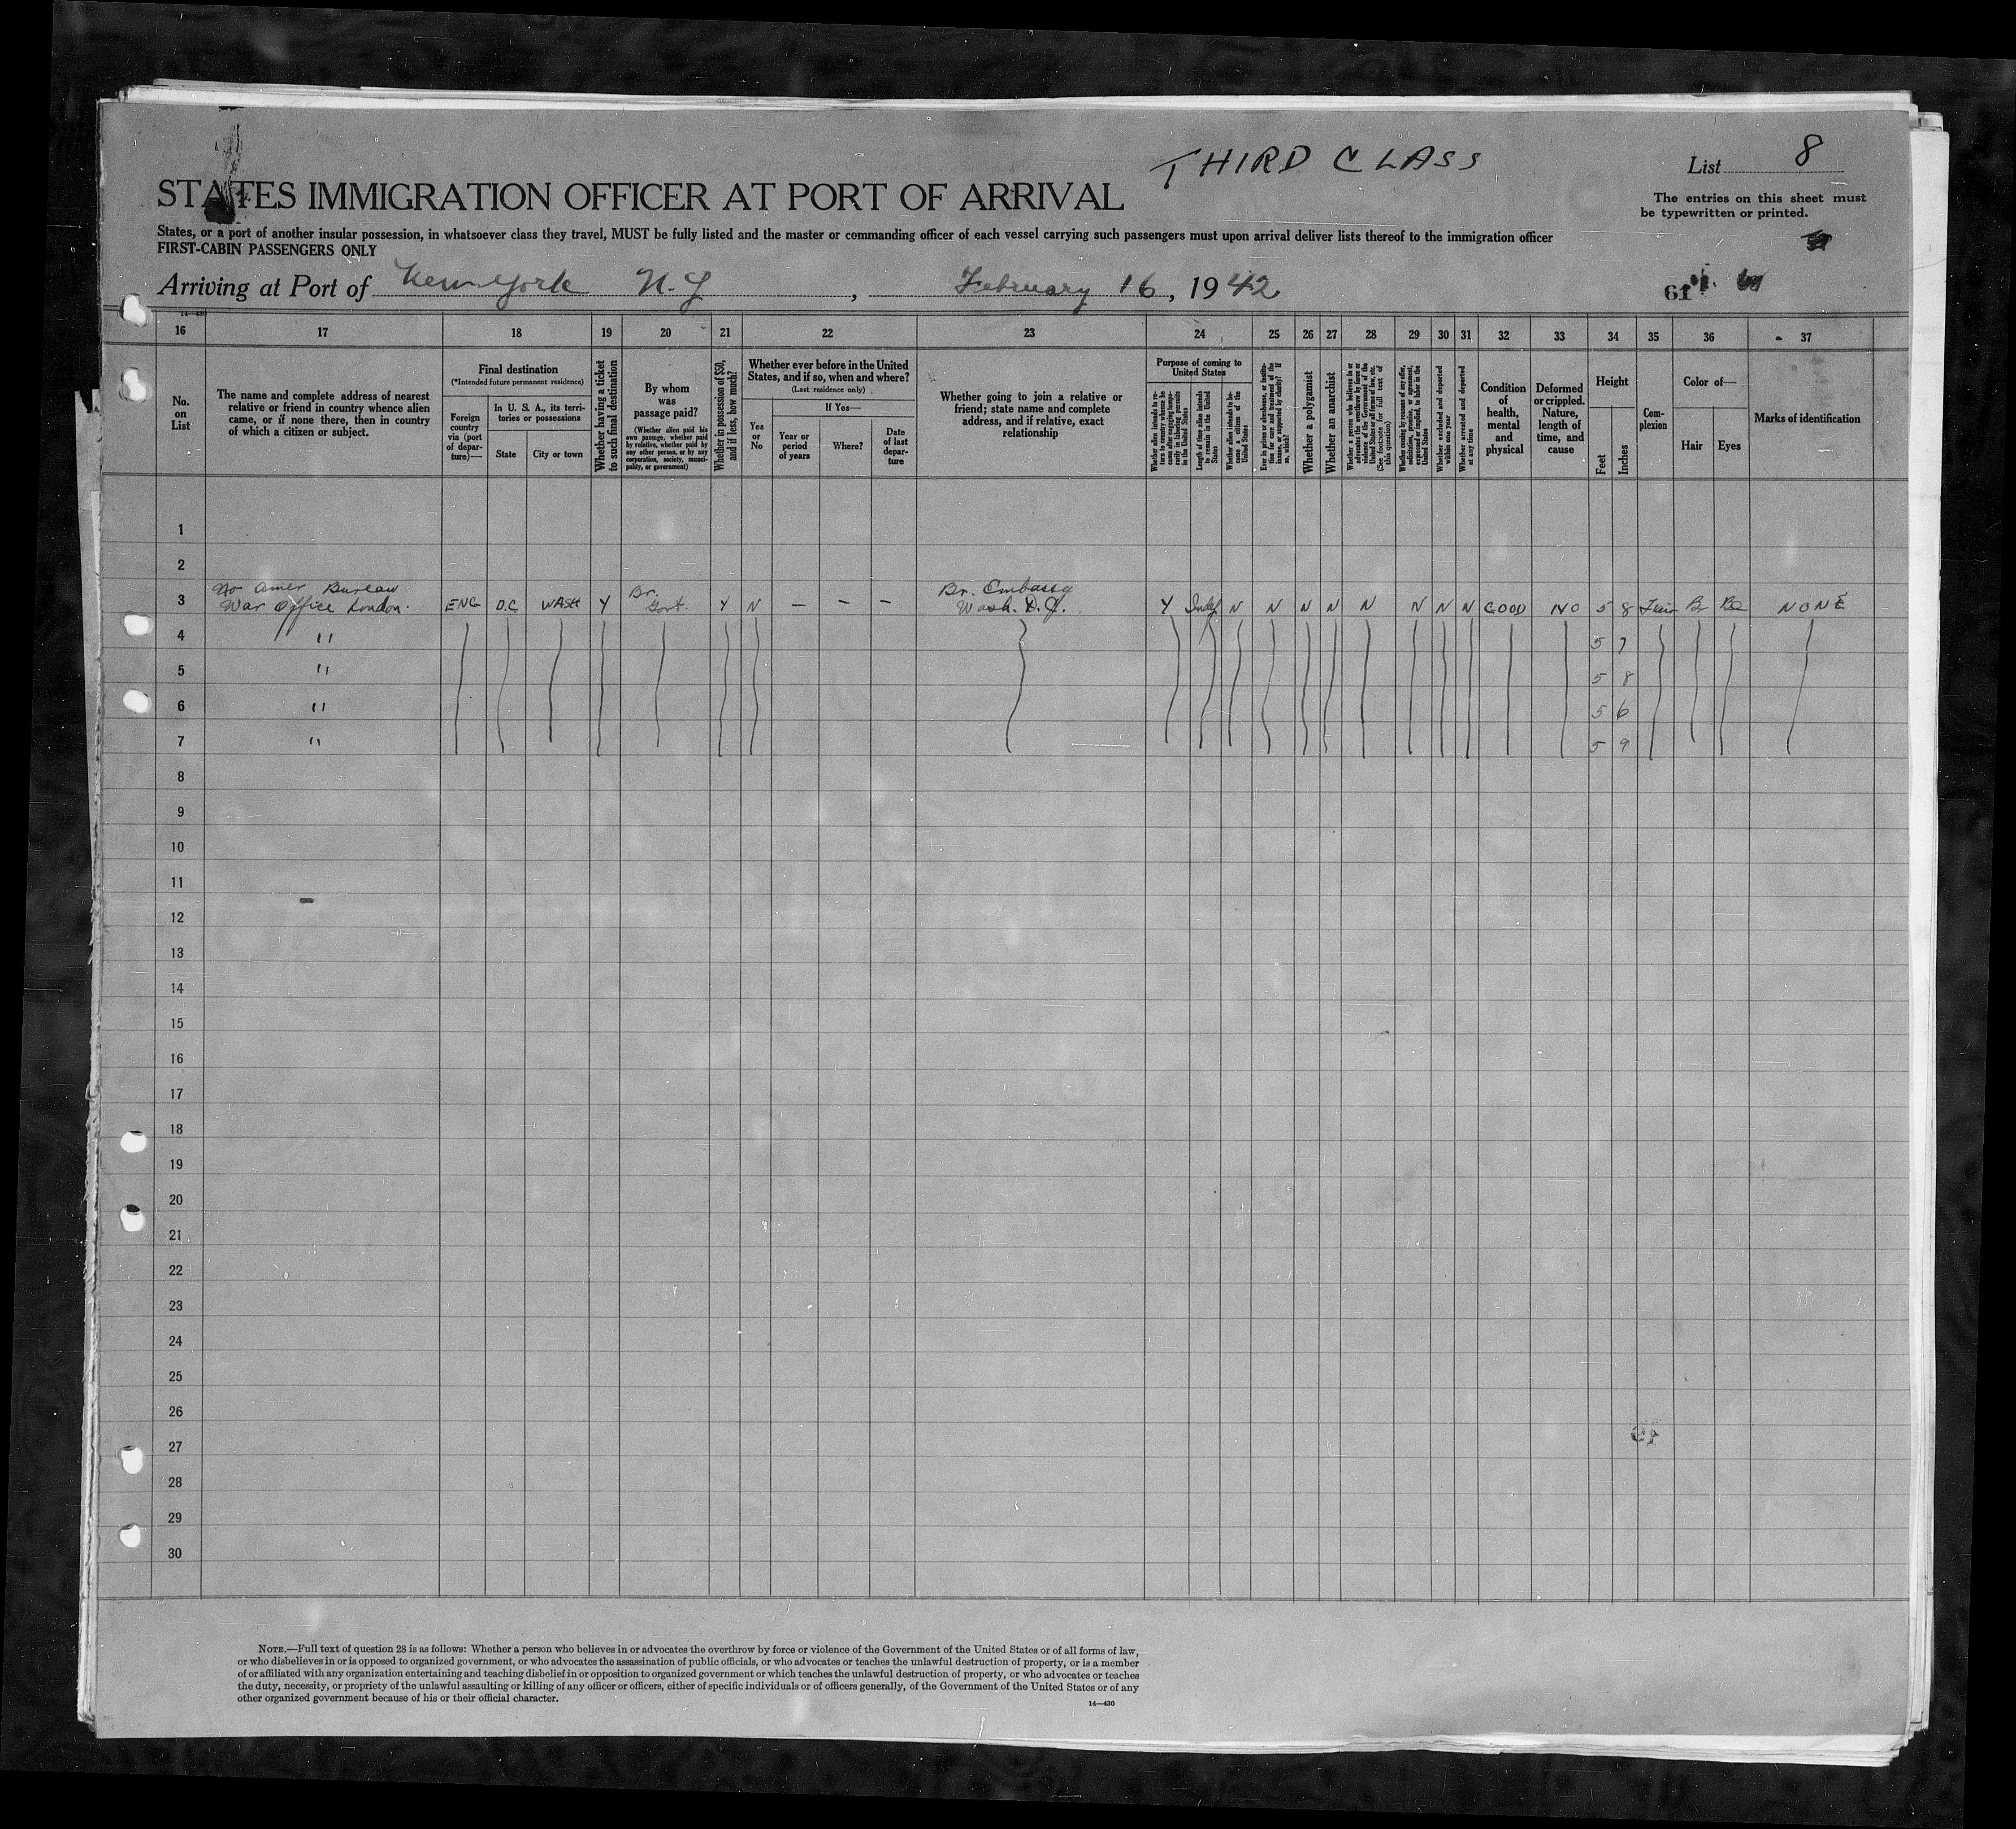 THIRD CLASS
List 8
STATES IMMIGRATION OFFICER AT PORT OF ARRIVAL
The entries on this sheet must
be typewritten or printed.
States, or a port of another insular possession, in whatsoever class they travel, MUST be fully listed and the master or commanding officer of each vessel carrying such passengers must upon arrival deliver lists thereof to the immigration officer
FIRST-CABIN PASSENGERS ONLY
Arriving at Port of New York N.Y , February 16, 1942
61
16 17 18 19 20 21 22 23 24 25 26 27 28 29 30 31 32 33 34 35 36 37
No.
on
List
The name and complete address of nearest
relative or friend in country whence alien
came, or if none there, then in country
of which a citizen or subject.
Final destination
(*Intended future permanent residence)
Foreign
country
via (port
of depar-
ture)—
In U. S. A., its terri-
tories or possessions
State
City or town
Whether having a ticket
to such final destination
By whom
was
passage paid?
(Whether alien paid his
own passage, whether paid
by relative, whether paid by
any other person, or by any
corporation, society, munici-
pality, or government)
Whether in possession of $50,
and if less, how much?
Whether ever before in the United
States, and if so, when and where?
(Last residence only)
Yes
or
No
If Yes—
Year or
period
of years
Where?
Date
of last
depar-
ture
Whether going to join a relative or
friend; state name and complete
address, and if relative, exact
relationship
Purpose of coming to
United States
Whether alien intends to re-
turn to country whence he
came after engaging tempo-
rarily in laboring pursuits
in the United States
Length of time alien intends
to remain in the United
States
Whether alien intends to be-
come a citizen of the
United States
Ever in prison or almshouse, or institu-
tion for care and treatment of the
insane, or supported by charity? If
so, which?
Whether a polygamist
Whether an anarchist
Whether a person who believes in or
advocates the overthrow by force or
violence of the Government of the
United States or all forms of law, etc.
(See footnote for full text of
this question)
Whether coming by reason of any offer,
solicitation, promise, or agreement,
expressed or implied, to labor in the
United States
Whether excluded and deported
within one year
Whether arrested and deported
at any time
Condition
of
health,
mental
and
physical
Deformed
or crippled.
Nature,
length of
time, and
cause
Height
Feet
Inches
Com-
plexion
Color of—
Hair
Eyes
Marks of identification
1
2
No Amer Bureau Br. Br. Embassy
3 War Office London. ENG D.C WASH Y Govt. Y N — — — Wash. D.C. Y Indef N N N N N N N N GOOD NO 5 8 Fair Br NONE
4 " 5 7
5 " 5 8
6 " 5 6
7 " 5 9
8
9
10
11
12
13
14
15
16
17
18
19
20
21
22
23
24
25
26
27
28
29
30
NOTE.—Full text of question 28 is as follows: Whether a person who believes in or advocates the overthrow by force or violence of the Government of the United States or of all forms of law,
or who disbelieves in or is opposed to organized government, or who advocates the assassination of public officials, or who advocates or teaches the unlawful destruction of property, or is a member
of or affiliated with any organization entertaining and teaching disbelief in or opposition to organized government or which teaches the unlawful destruction of property, or who advocates or teaches
the duty, necessity, or propriety of the unlawful assaulting or killing of any officer or officers, either of specific individuals or of officers generally, of the Government of the United States or of any
other organized government because of his or their official character.
14—430